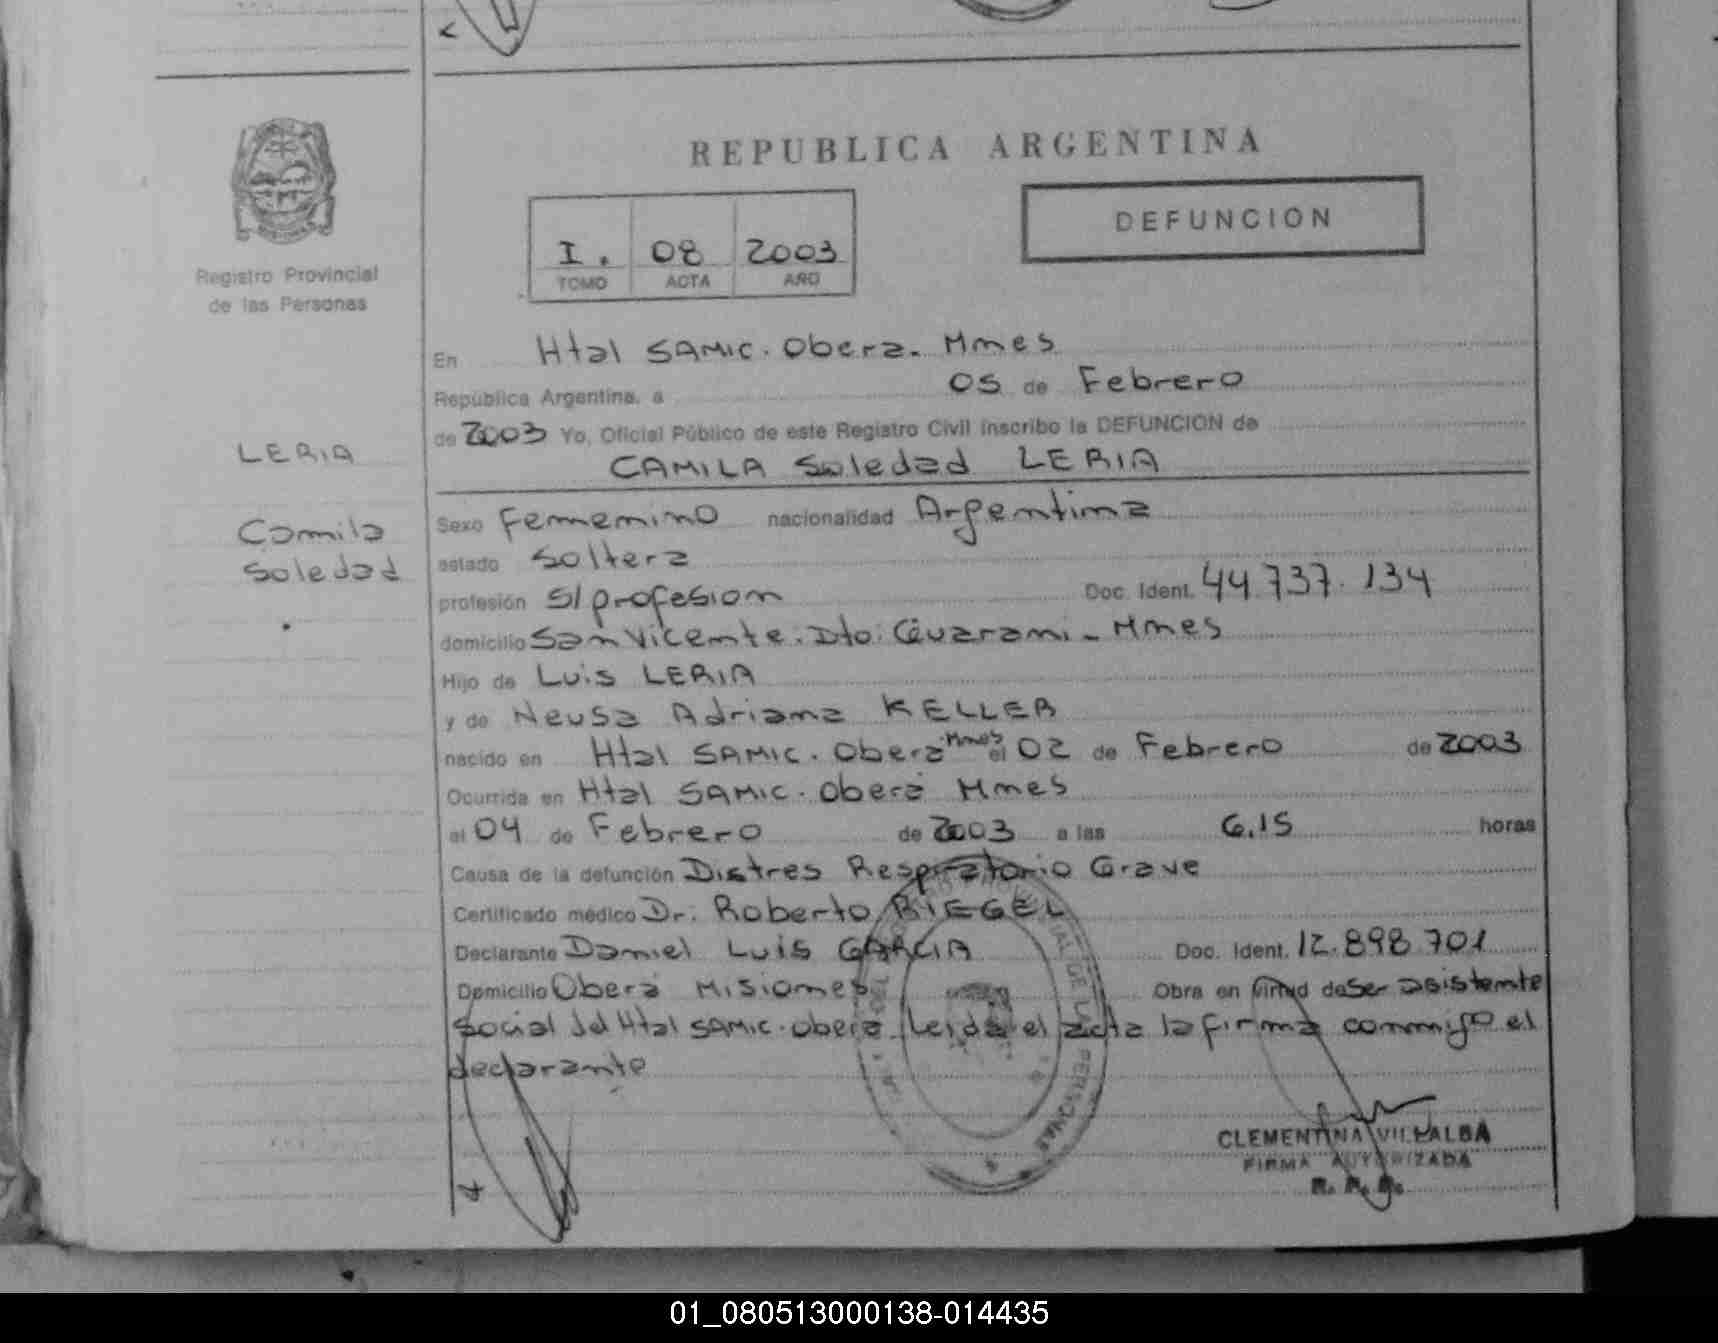 REPUBLICA ARGENTINA
I. 08 2003
TOMO ACTA AÑO
DEFUNCION
Registro Provincial
de las Personas
LERIA
Camila
Soledad
En Htal SAMIC. Obera. Mnes
República Argentina, a 05 de Febrero
de 2003 Yo, Oficial Público de este Registro Civil inscribo la DEFUNCION de
CAMILA Soledad LERIA
Sexo Femenino nacionalidad Argentina
estado Soltera
profesión S/profesion Doc. Ident. 44.737.134
domicilio San Vicente. Dto. Guarani - Mnes
Hijo de Luis LERIA
y de Neusa Adriana KELLER
nacido en Htal SAMIC. Obera Mnes el 02 de Febrero de 2003
Ocurrida en Htal SAMIC. Oberá Mnes
el 04 de Febrero de 2003 a las 6.15 horas
Causa de la defunción Distres Respiratorio Grave
Certificado médico Dr. Roberto RIEGEL
Declarante Daniel Luis GARCIA Doc. Ident. 12.898.701
Domicilio Oberá Misiones Obra en virtud de Ser asistente
Social del Htal SAMIC. Obera. Leida el acta la firma conmigo el
declarante
DE LAS PERSONAS
CLEMENTINA VILLALBA
FIRMA AUTORIZADA
R. P. P.
01_080513000138-014435